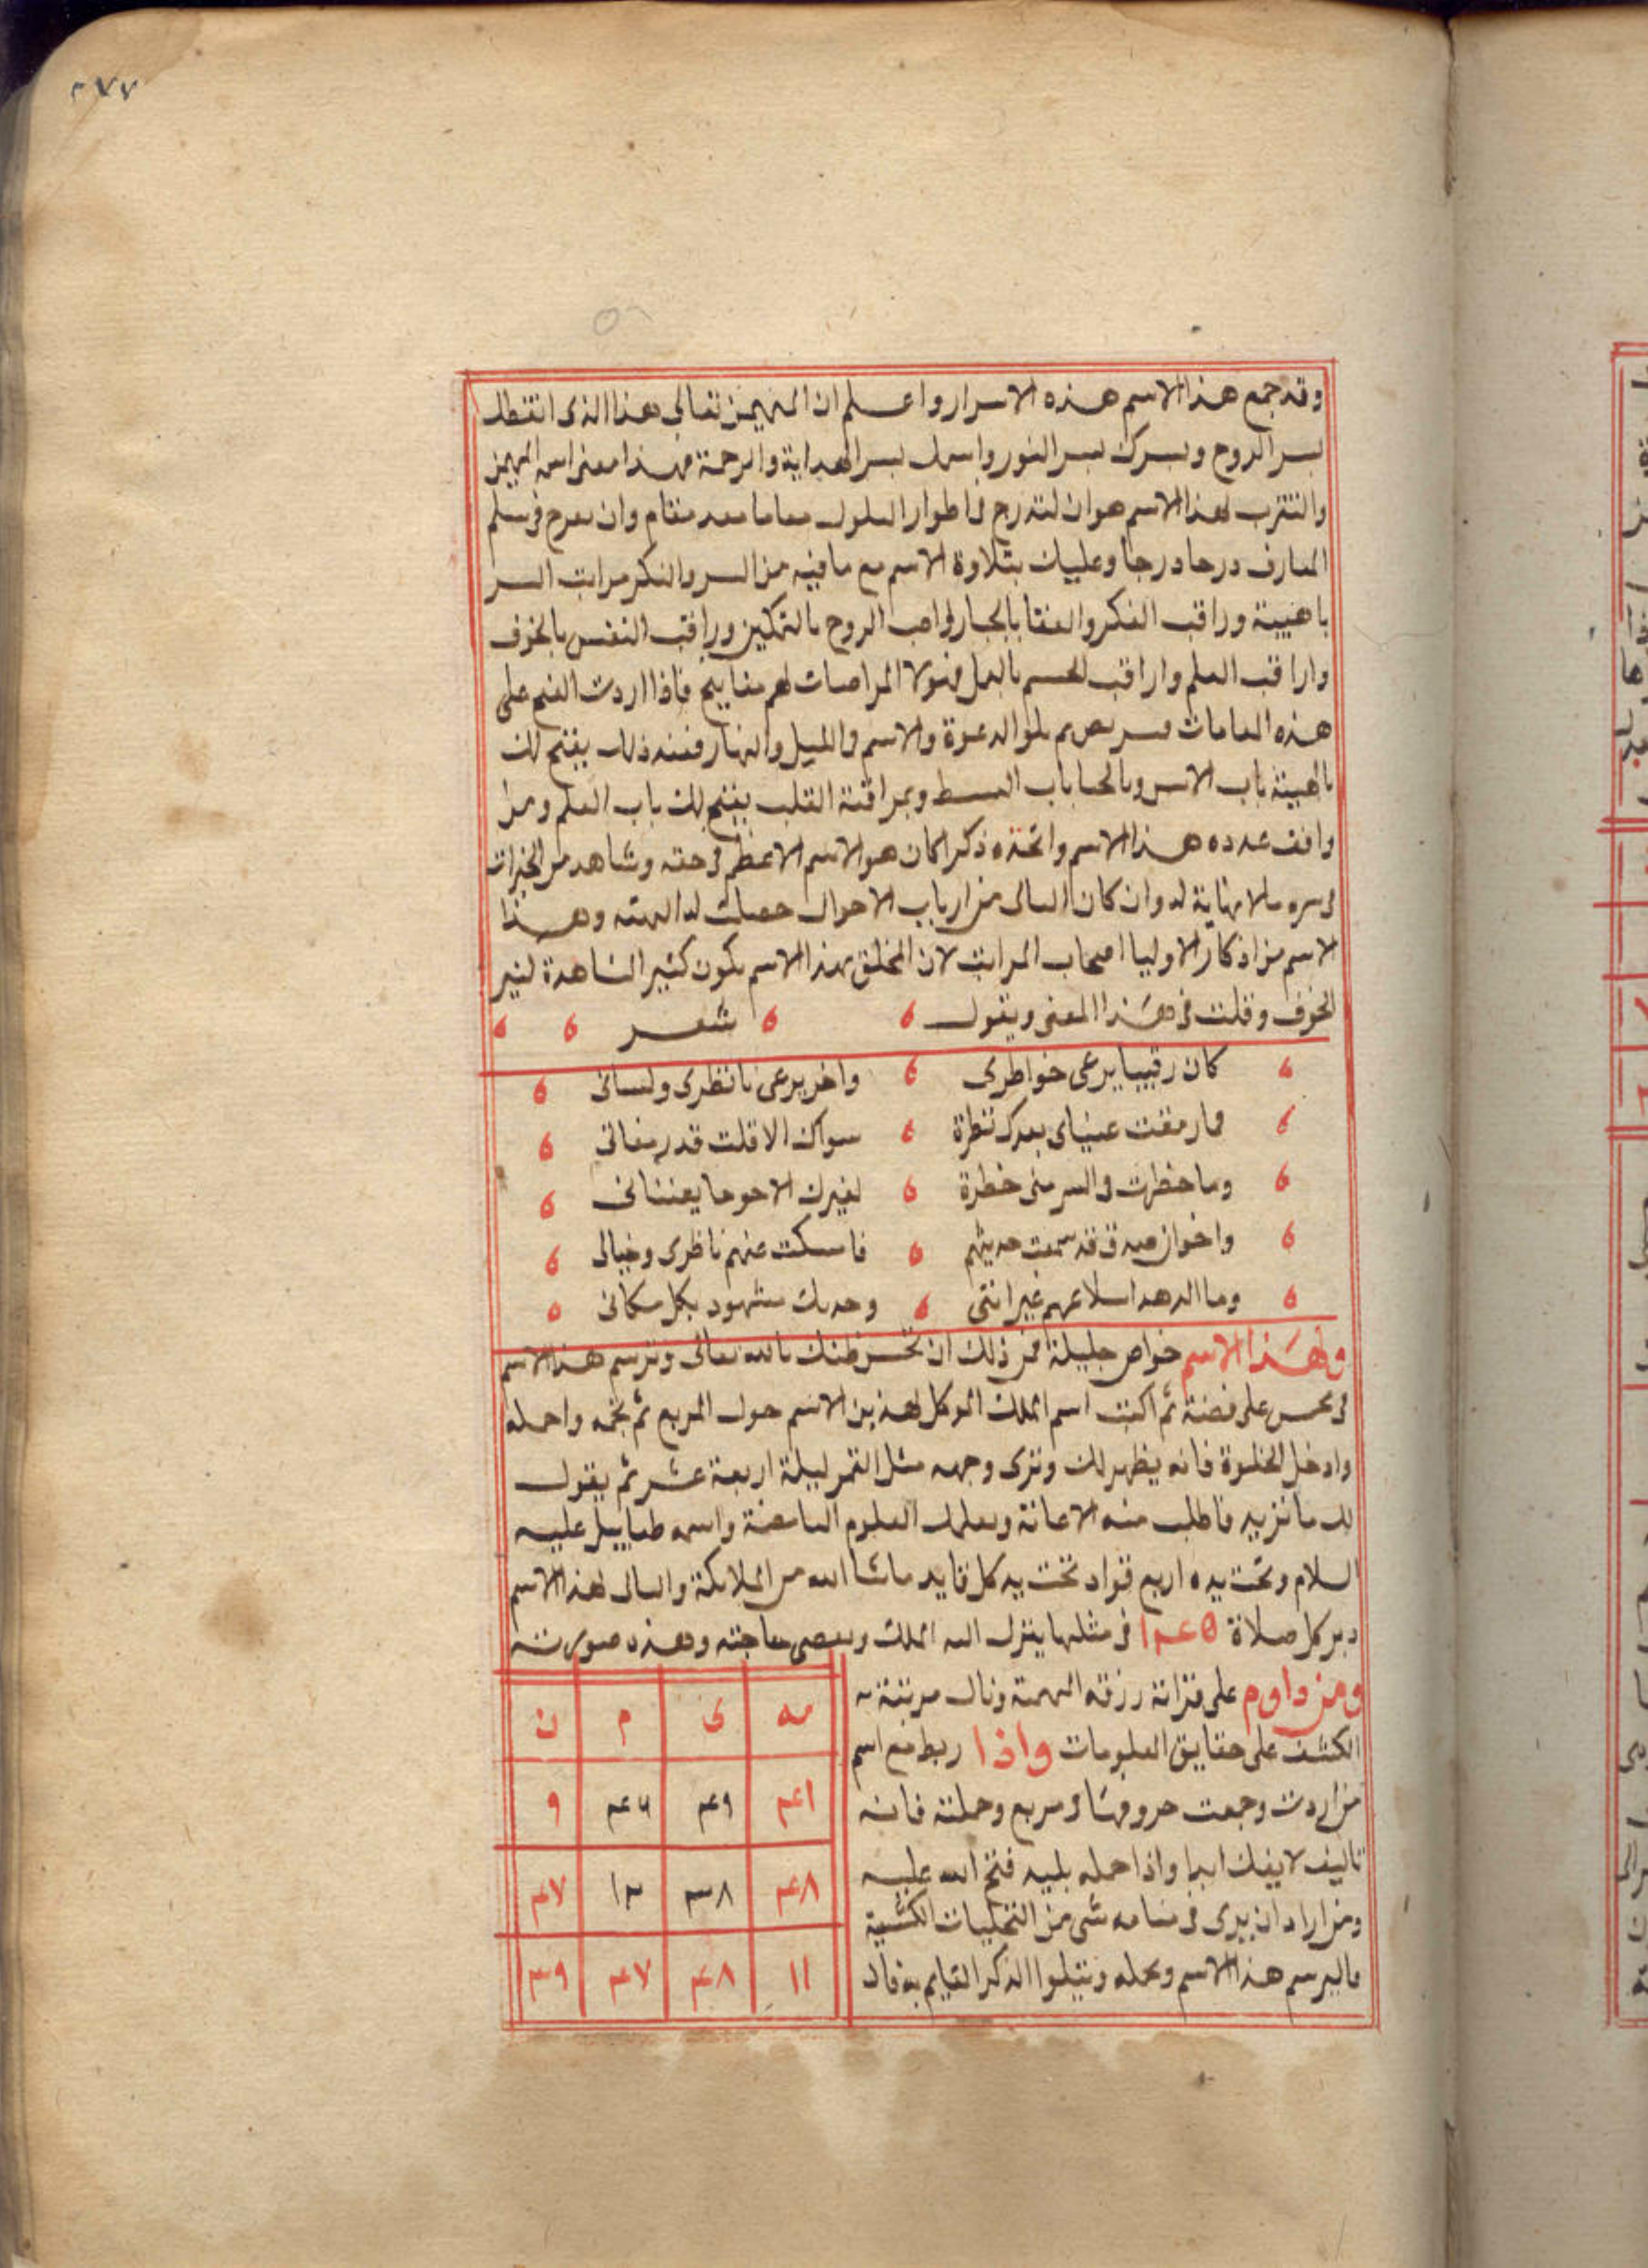 ٢٧٧
وقد جمع هذا الاسم هذه الاسرار واعلم ان المهيمن تعالى هذا الذى
بسر الروح وبسرك بسر النور واسمك بسر الهداية والرحمة فهذا معنى اسمه المهيمن
والتقرب لهذا الاسم هو ان لتدرج فى اطوار السلوك مقاما بعد مقام وان تعرج فى سلم
المعارف درجا درجا وعليك بتلاوة الاسم مع ما فيه من السر والفكر مراتب السر
باهيبة وراقب الفكر والعقا بالجبار الروح بالتمكين وراقب النفس بالخوف
واراقب العلم واراقب الجسم بالعمل فهولا لهم مفاتيح فاذا اردت الفتح على
هذه المقامات الدعوة والاسم فى الليل والنهار فعند ذلك يفتح لك
بالهيبة باب الانس وبالحيا باب البسط وبمراقبة القلب يفتح لك باب العلم ومن
وافق عدده هذا الاسم واتخذه ذكرا كان هو الاسم الاعظم فى حقه وشاهد من الخيرات
فى سره مالا نهاية له وان كان التالى من ارباب الاحوال حصلت له الهيبة وهذا
الاسم من اذكار الاوليا اصحاب المراتب لان المتخلق بهذا الاسم يكون كثير المشاهدة لغير
الخوف وقلت فى هذا المعنى ويقول شعر
كان رقيبا يرعى خواطرى واخر يرعى ناظرى ولسانى
فما رمقت عيناى بعدك نظرة سواك الا قلت قد رمقانى
وما خطرت فى السر منى خطرة لغيرك الا عرجا بعنانى
واخوان صدق قد سمعت حديثهم فامسكت عنهم ناظرى وخيالى
وما الدهر اسلا عنهم غير اننى وجدتك مشهود بكل مكانى
ولهذا الاسم خواص جليلة فمن ذلك ان تحسن ظنك بالله تعالى وترسم هذا الاسم
فى على فضة ثم اكتب اسم الملك الموكل لهذين الاسم حول المربع ثم بخره واحمله
وادخل الخلوة فانه يظهر لك وترى وجهه مثل القمر ليلة اربعة عشر ثم يقول
لك ما تريد فاطلب منه الاعانة ويعلمك العلوم الغامضة واسمه طياييل عليه
السلام وتحت يده اربع قواد تحت يد كل قايد ما شا الله من الملائكة والتالى لهذا الاسم
دبر كل صلاة ١٤٥ فى مثلها ينزل اليه الملك ويقضى حاجته وهذه صورته
ومن داوم على قراته رزقه الهيبة ونال مرتبته
الكشف على حقايق المعلومات واذا ربط مع اسم
من اردت وجمعت حروفهما فى مربع وحملته فانه
تاليف لا يفك ابدا واذا حمله بليد فتح الله عليه
ومن اراد ان يرى فى منامه شى من التجليات الكشفية
فاليرسم هذا الاسم ويحمله ويتلوا الذكر القايم به فاد
مه ى م ن
٤١ ٤٩ ٤٦ ٩
٤٨ ٣٨ ١٢ ٤٧
١١ ٤٨ ٤٧ ٣٩